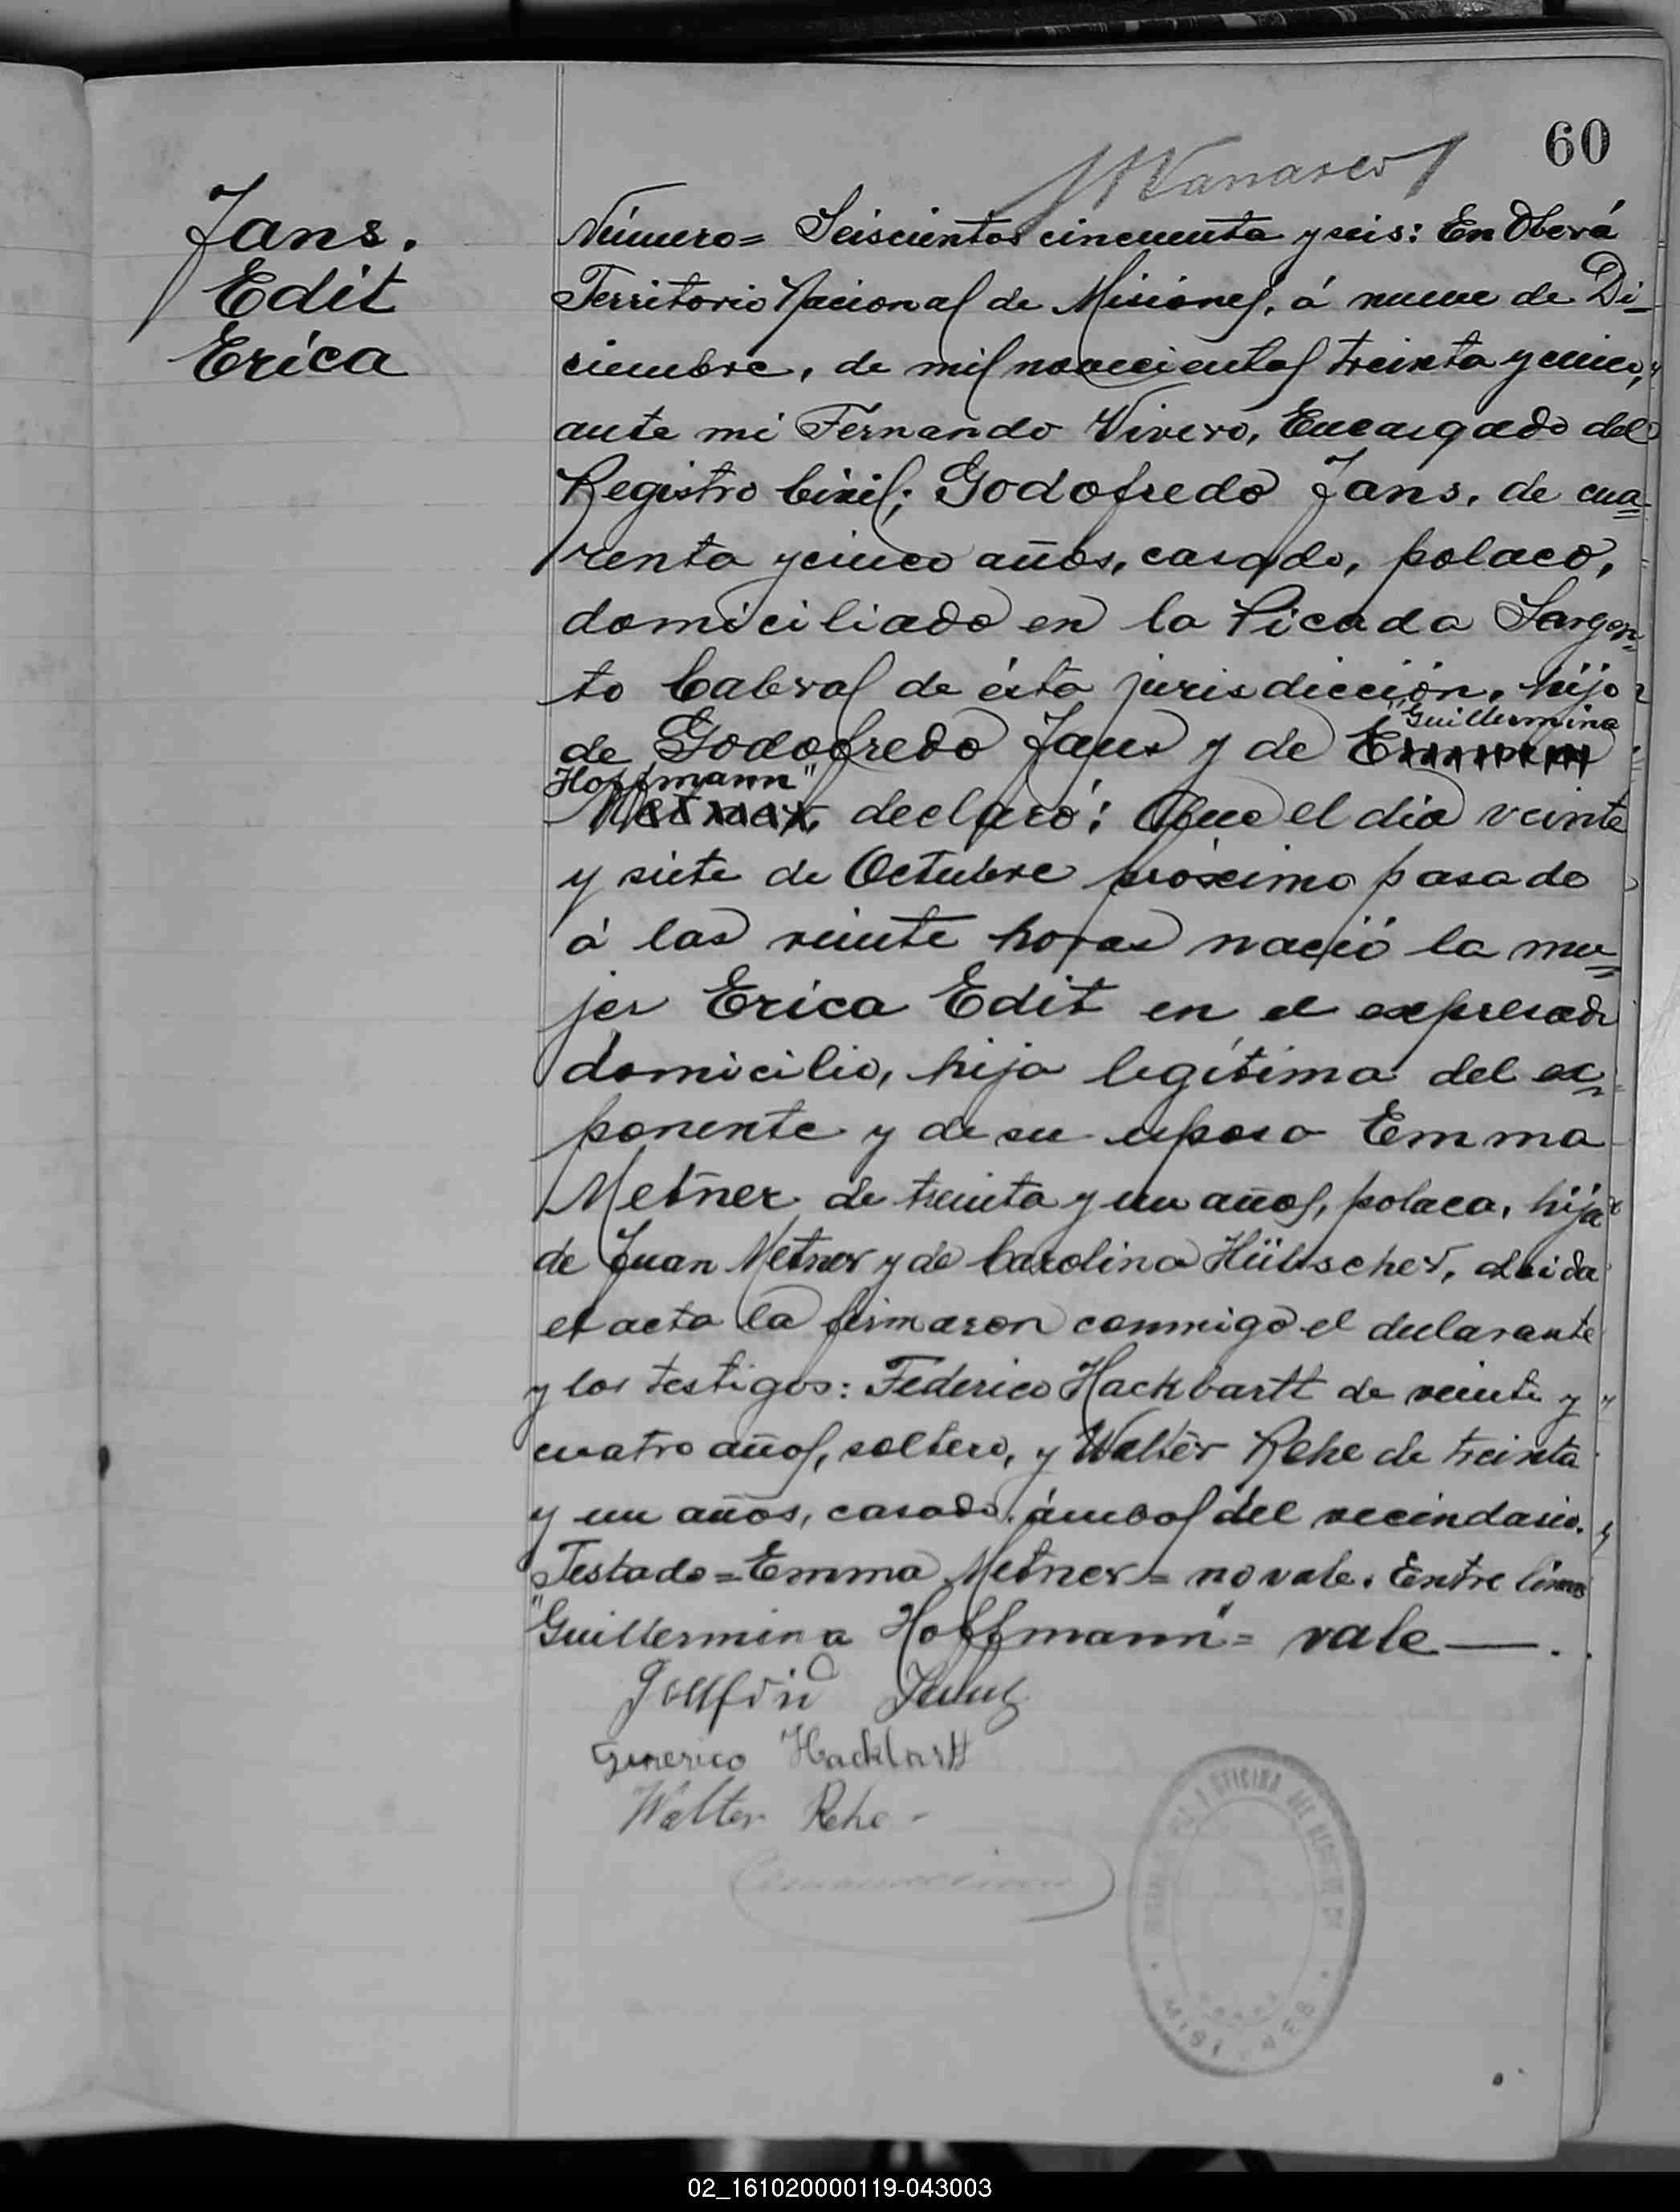 60
Jans.
Edit
Erica
Número= Seiscientos cincuenta y seis: En Oberá
Territorio Nacional de Misiones, á nueve de Di-
ciembre, de mil novecientos treinta y cinco,
ante mi Fernando Vivero, Encargado del
Registro Civil; Godofredo Jans, de cua=
renta y cinco años, casado, polaco,
domiciliado en la Picada Sargen=
to Cabral de ésta jurisdicción, hijo
"Guillermina
de Godofredo Jans y de Emma
Hoffmann"
Metner, declaró: Que el dia veinte
y siete de Octubre próximo pasado
á las veinte horas nació la mu=
jer Erica Edit en el expresado
domicilio, hija legítima del ex=
ponente y de su esposa Emma
Metner de treinta y un años, polaca, hija
de Juan Metner y de Carolina Hübscher, Leida
el acta la firmaron conmigo el declarante
y los testigos: Federico Hackbartt de veinte y
cuatro años, soltero, y Walter Rehe de treinta
y un años, casado, ámbos del vecindario.
Testado=Emma Metner= no vale. Entre lineas
"Guillermina Hoffmann"= vale—.
Hackbartt
Walter Rehe-
OFICINA DEL REGISTRO
MISIONES
02_161020000119-043003